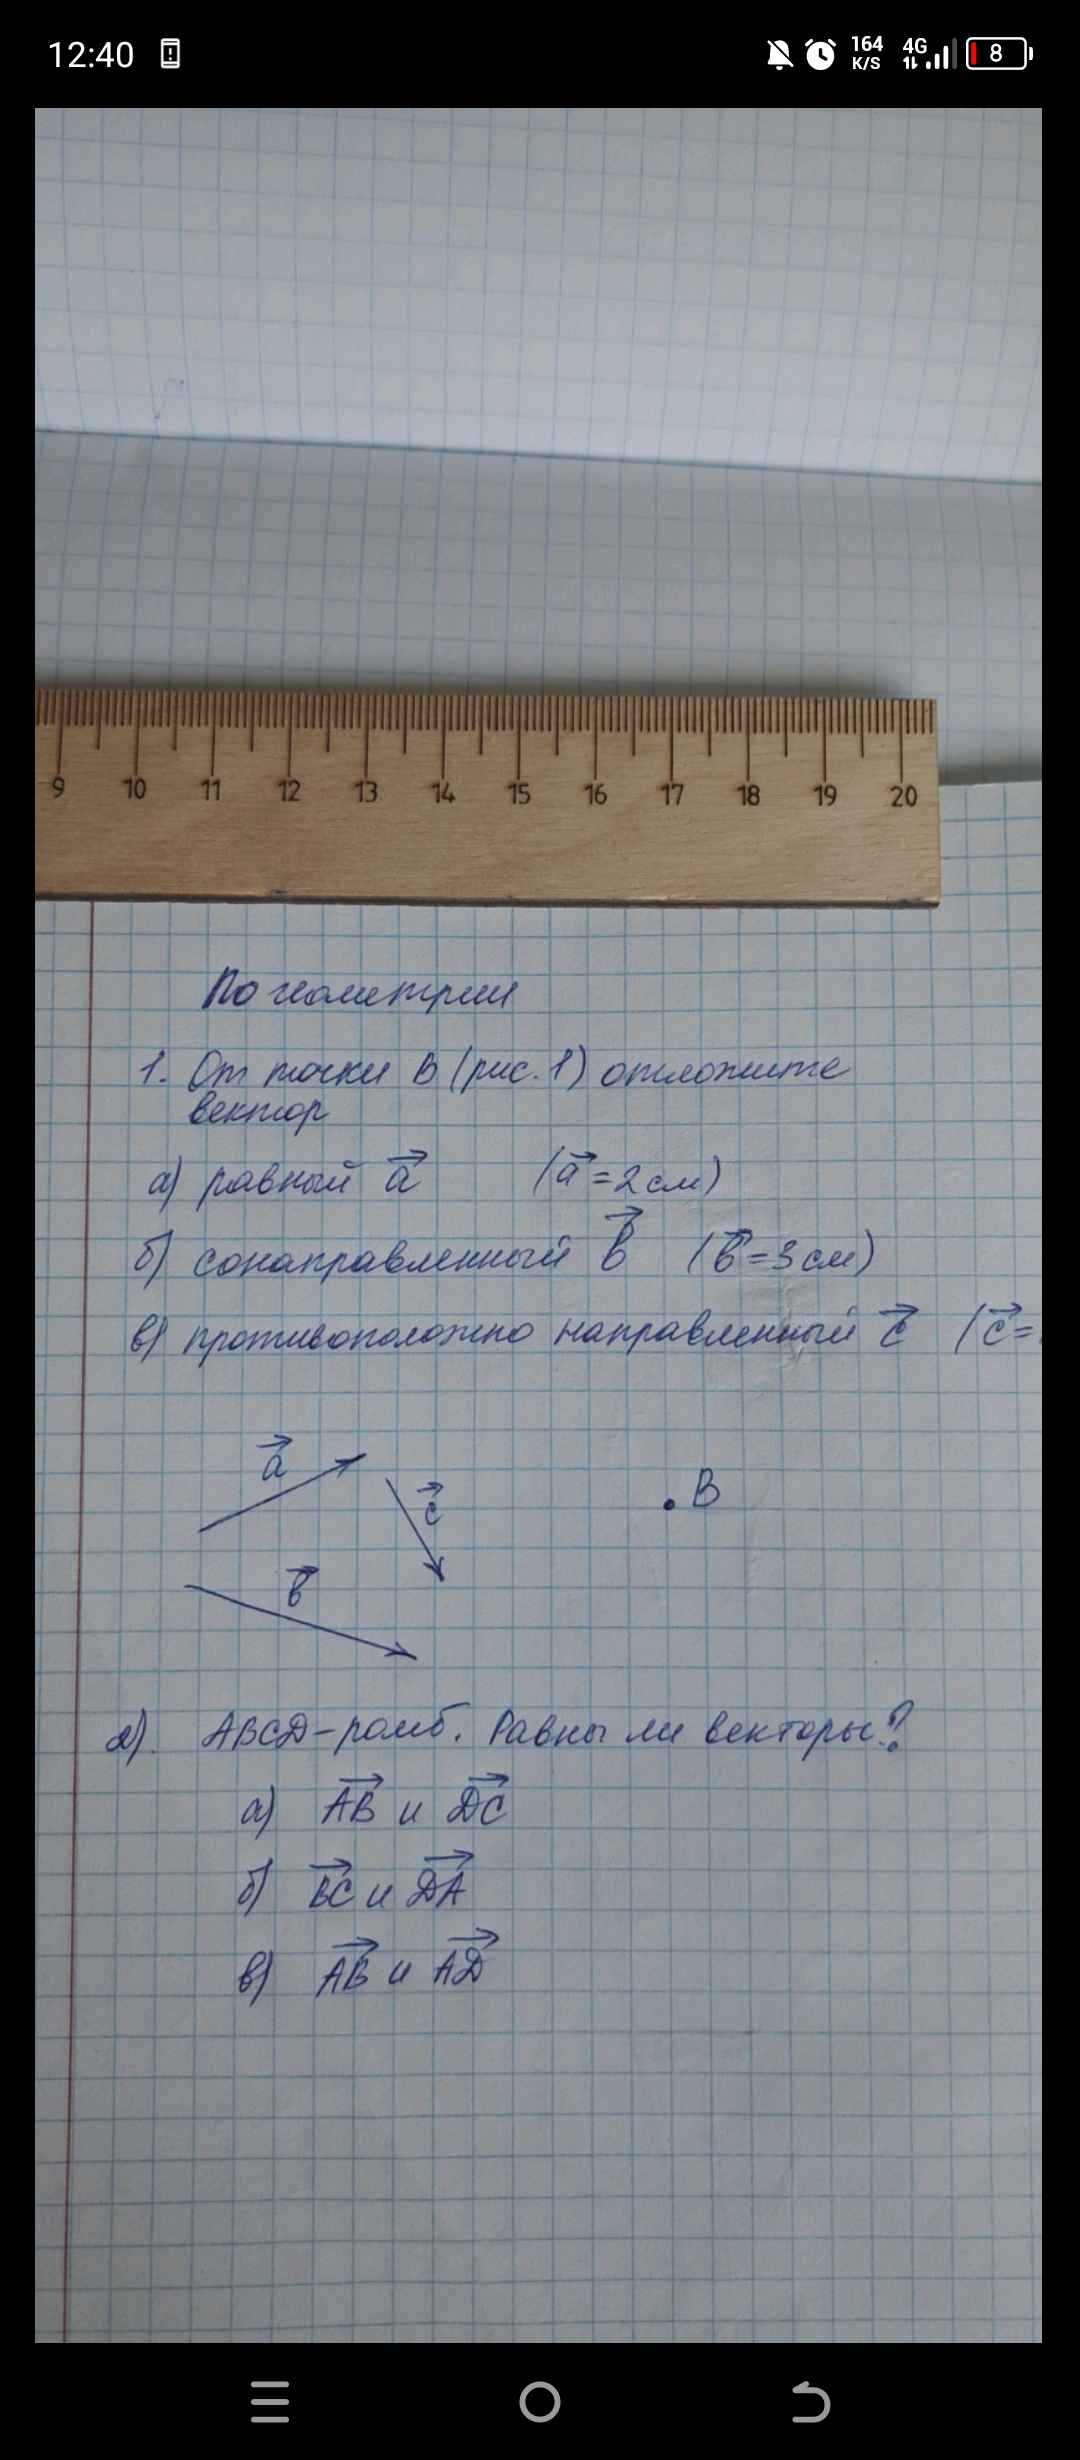 12:40
164 K/S 4G 8
9 10 11 12 13 14 15 16 17 18 19 20
По геометрии
1. От точки В (рис. 1) отложите
вектор
а) равный a⃗ (a⃗ = 2 см)
б) сонаправленный b⃗ (b⃗ = 3 см)
в) противоположно направленный c⃗ (c⃗ =
a⃗
c⃗
. B
b⃗
2). ABCD – ромб. Равны ли векторы?
а) AB⃗ и DC⃗
б) BC⃗ и DA⃗
в) AB⃗ и AD⃗